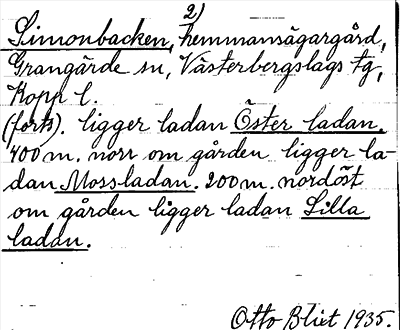 2)
Simonbacken, hemmansägargård,
Grangärde sn, Västerbergslags tg,
Kopp l.
(forts). ligger ladan Öster ladan.
400 m. norr om gården ligger la-
dan Mossladan. 200 m. nordöst
om gården ligger ladan Lilla
ladan.
Otto Blixt 1935.